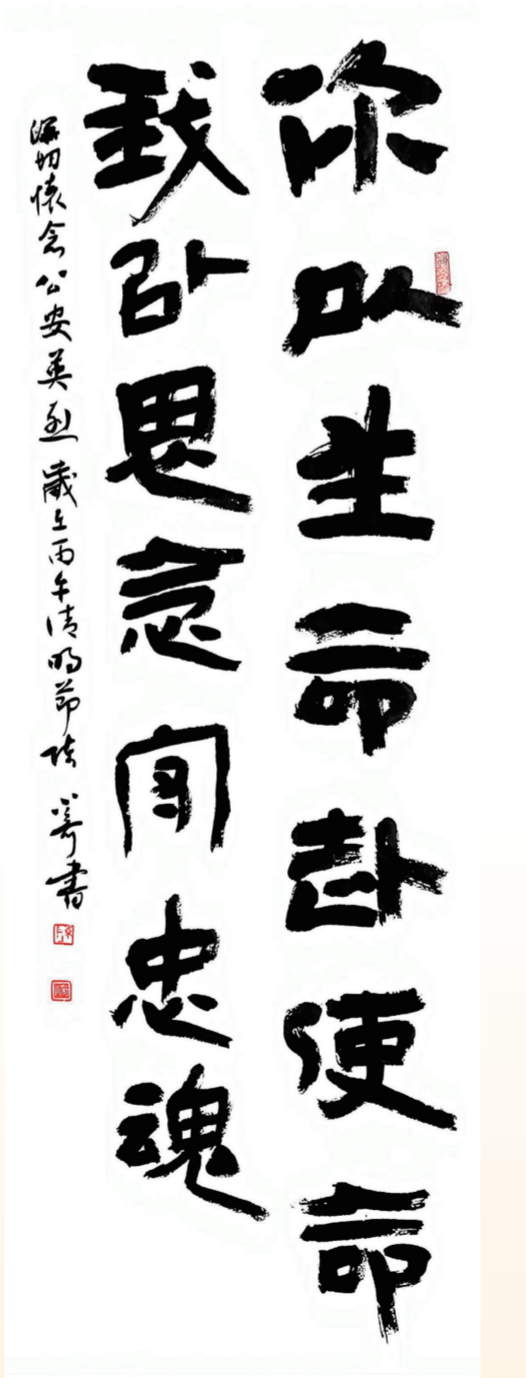 你以生命赴使命
我以思念忠魂
深切懷念公安英烈 歲丙午清明節 書